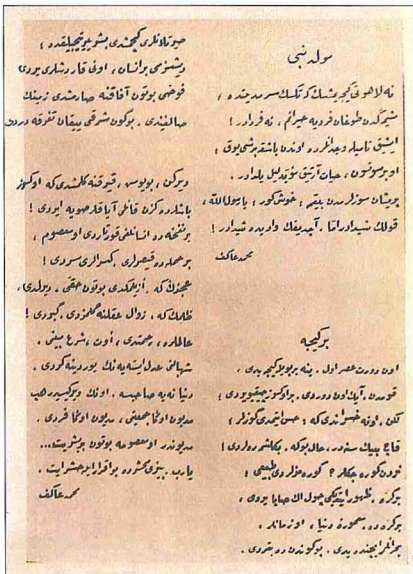 مولد نبی
نه لاهوتی گیجه‌یمشسك كه تكسك سرمدیتده ؛
مشیمه‌ڭدن طوغان فردایه حیرانم ، نه فردادر !
ایشیق نامیله وجدانلرده اوندن باشقه برشی یوق ؛
او بر سونسون ، حیات آرتیق مؤبد لیل یلدادر .
پریشان سوزلرمدن بیقمه ؛ خوش گور ؛ یا رسول الله ،
قولك شیدادر اما ، آچدیغك وادیده شیدادر !
محمد عاکف
بر گیجه
اون دورت عصر اول . ینه بر بویله گیجه‌یدی .
قومدن ، آیك اون دوردی ، بر اوكسوز چیقیویردی ؛
لكن ، او نه خسراندی كه : حس ایتمدی گوزلر ؛
قاچ بیك سنه‌در ، حالبوكه ، بكلشمده‌لردی !
نردن گوره‌جكلر ؟ گوره‌مزلردی طبیعی ؛
بر كره ، ظهور ایتدیكی چول اك صاپا یردی ؛
بر كره ده ، معمورۀ دنیا ، او زمانلر ،
بحرانلر ایچنده‌یدی . بوگوندن ده بتردی .
صیرتلانلری گچمشدی بشر ییرتیجیلقده ؛
دیشسزمی بر انسان ، اونی قاردشلری یردی
فوضی بوتون آفاقنه صارمشدی زمینك
صالغیندی . بوگون شرقی ییقان تفرقه دردی
دیركن ، بویومش ، قیرقنه گلمشدی كه اوكسوز
باشلرده گزن قانلی آیاقلر صویه ایردی !
بر نفخه ده انسانلغی قورتاردی او معصوم ،
بر حمله ده قیصرلری ، كسرالری سردی !
عجزك كه . ازیلمكدی بوتون حقی . دیرلدی ،
ظلمك كه . زوال عقلنه گلمزدی . گبردی !
عالملره ، رحمتدی ، اوت ، شرع مبینی .
شهبالنی عدل ایسته‌یه‌نك یوردینه گردی .
دنیا نه‌یه صاحبسه . اونك ویرگیسیدر هپ
مدیون اوڭا جمعیتی ، مدیون اوڭا فردی .
مدیوندر او معصومه بوتون بر بشریت ...
یارب ، بزی محشرده بو اقرار ایله حشر ایت .
محمد عاکف